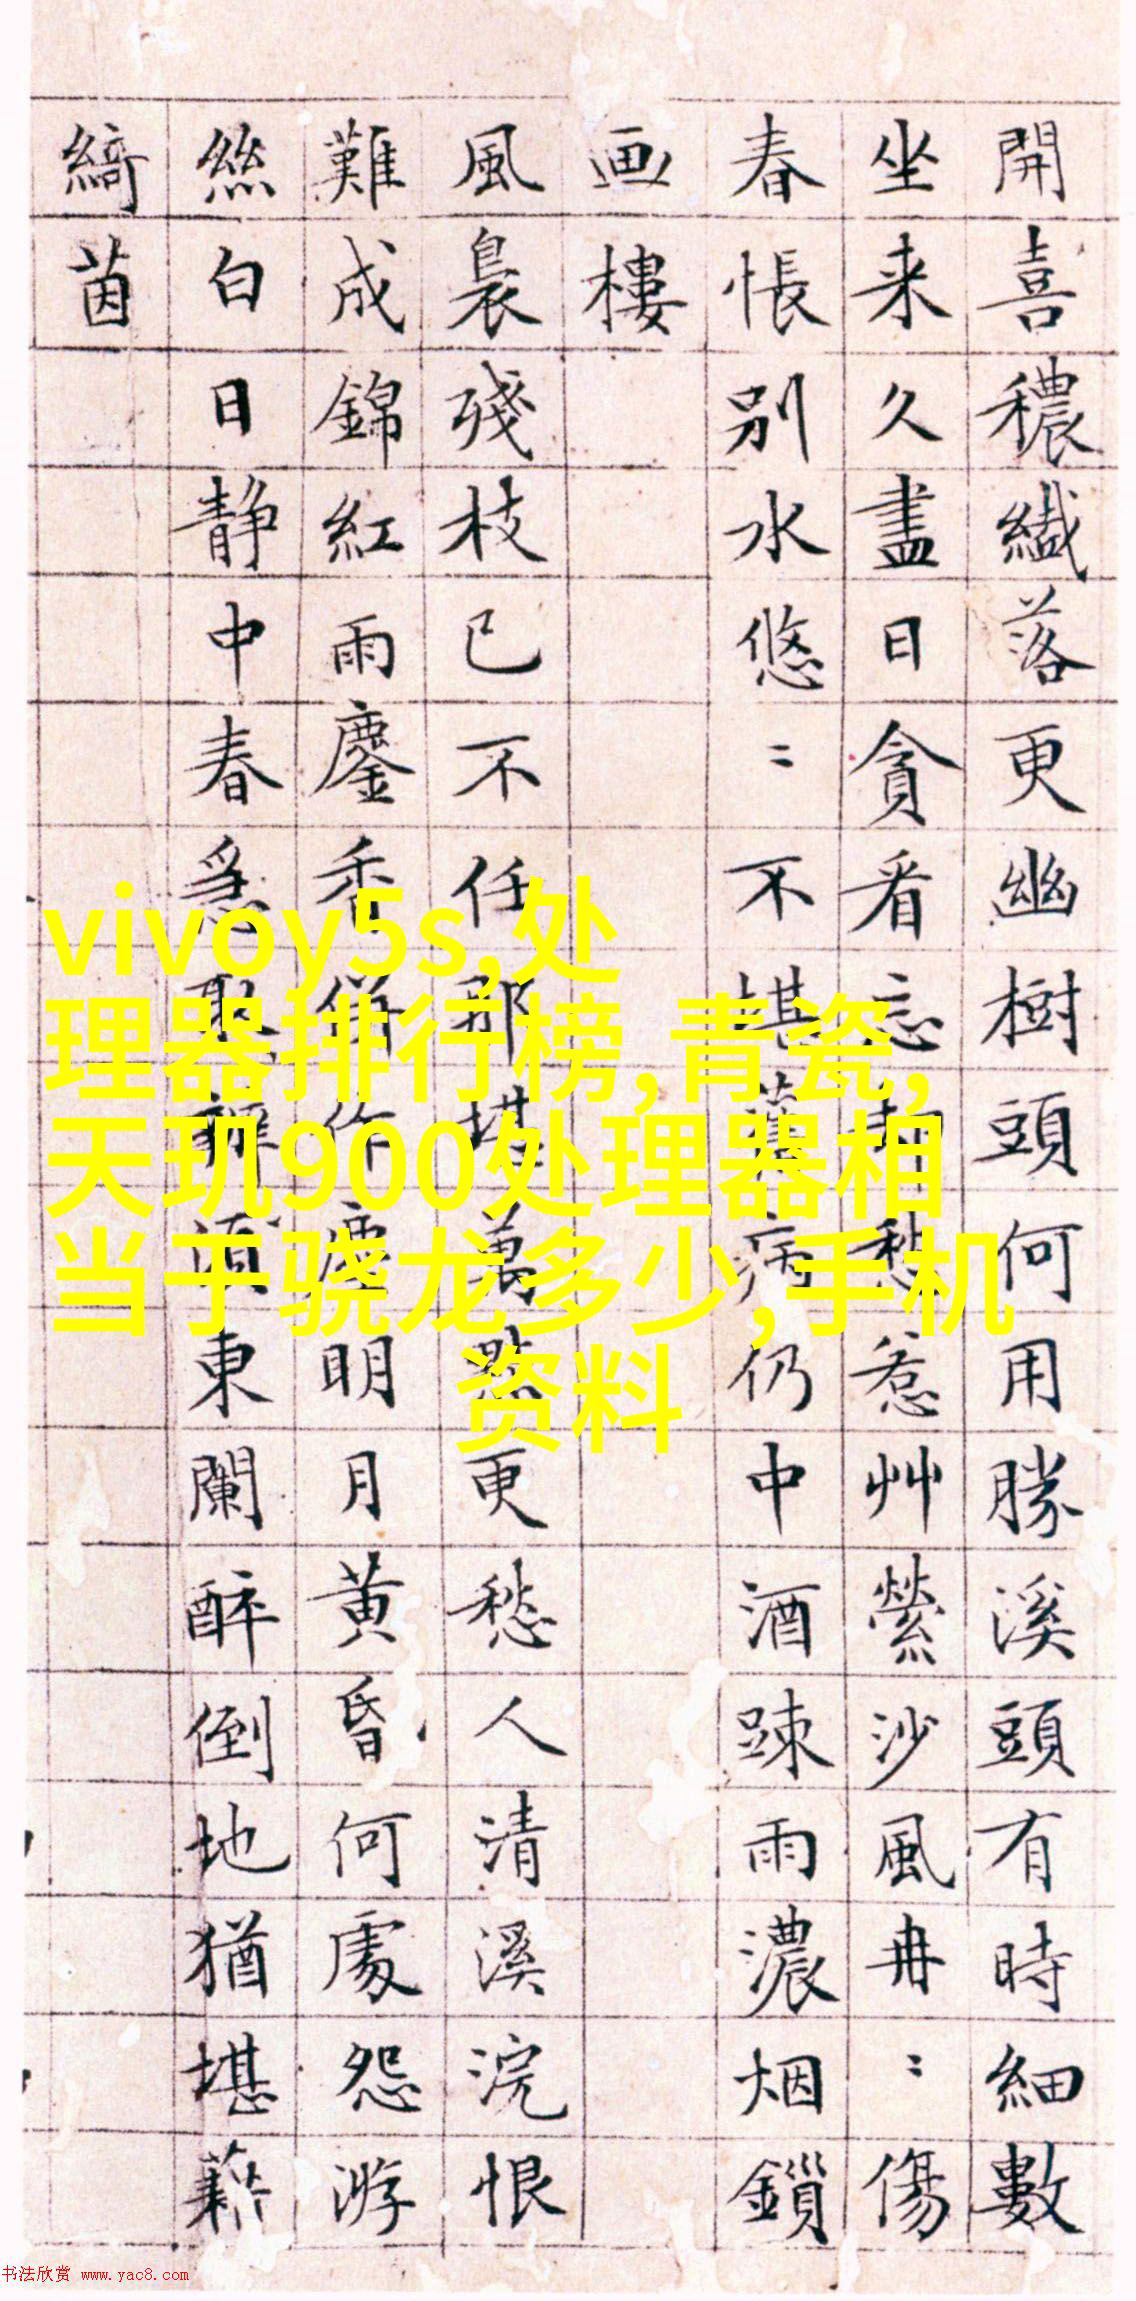 開喜穠纎落更幽樹頭何用勝溪頭有時細數
坐来久盡日貪看忘却愁惹艸縈沙風冉〻傷
春悵別水悠〻不堪舊病仍中酒踈雨濃烟鎖
画樓
風裊殘枝已不任那堪萬點更愁人清溪浣恨
難成錦紅雨鏖香併作塵明月黄昏何處怨游
絲白日静中春急取須東闌醉倒地猶堪藉
綺茵
vivoy5s,处
理器排行榜,青瓷,
天玑900处理器相
当于骁龙多少,手机
资料
书法欣赏 www.yac8.com